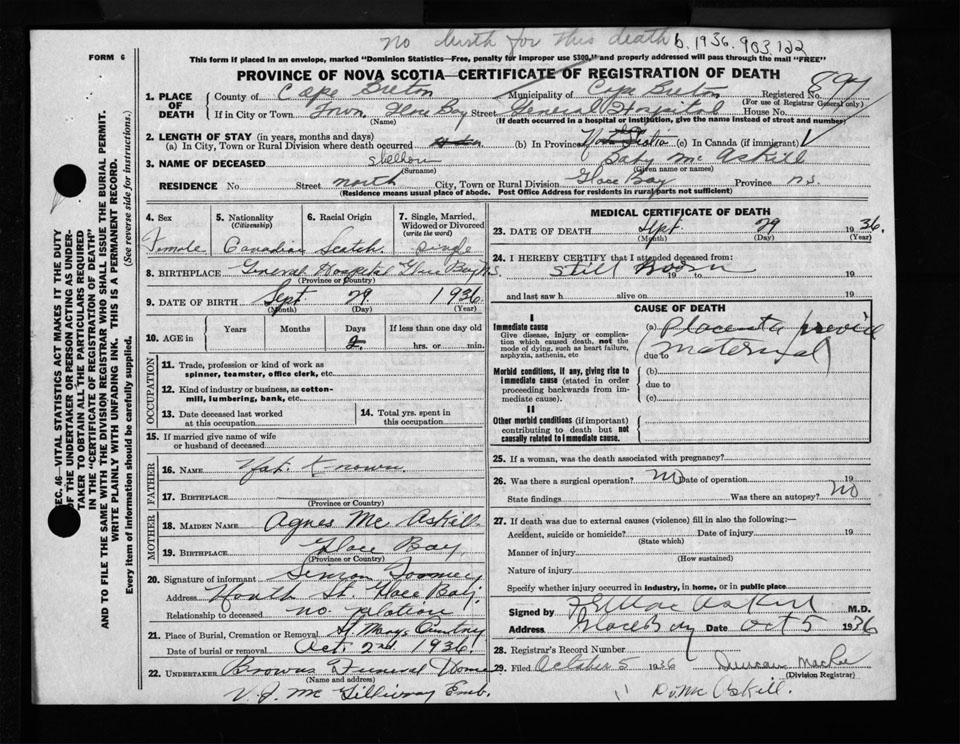 No birth for this death b. 1936. 903.122
FORM 6
This form if placed in an envelope, marked "Dominion Statistics—Free, penalty for improper use $300," and properly addressed will pass through the mail "FREE"
PROVINCE OF NOVA SCOTIA—CERTIFICATE OF REGISTRATION OF DEATH
1. PLACE OF DEATH
County of Cape Breton Municipality of Cape Breton Registered No. 894
(For use of Registrar General only)
If in City or Town Town Glace Bay Street General Hospital House No.
(Name) (If death occurred in a hospital or institution, give the name instead of street and number)
2. LENGTH OF STAY (in years, months and days)
(a) In City, Town or Rural Division where death occurred (b) In Province Nova Scotia (c) In Canada (if immigrant)
3. NAME OF DECEASED Stillborn Baby Mc Askill
(Surname) (Given name or names)
RESIDENCE No. Street North City, Town or Rural Division Glace Bay Province N.S.
(Residence means usual place of abode. Post Office Address for residents in rural parts not sufficient)
4. Sex
Female
5. Nationality
(Citizenship)
Canadian
6. Racial Origin
Scotch
7. Single, Married, Widowed or Divorced
(write the word)
Single
8. BIRTHPLACE General Hospital Glace Bay N.S.
(Province or Country)
9. DATE OF BIRTH Sept 29 1936
(Month) (Day) (Year)
10. AGE in
Years Months Days If less than one day old
hrs. or min.
OCCUPATION
11. Trade, profession or kind of work as
spinner, teamster, office clerk, etc.
12. Kind of industry or business, as cotton-
mill, lumbering, bank, etc.
13. Date deceased last worked
at this occupation
14. Total yrs. spent in
this occupation
15. If married give name of wife
or husband of deceased
FATHER
16. NAME Not Known.
17. BIRTHPLACE
(Province or Country)
MOTHER
18. MAIDEN NAME Agnes Mc Askill
19. BIRTHPLACE Glace Bay
(Province or Country)
20. Signature of informant
Address North St. Glace Bay.
Relationship to deceased no relation
21. Place of Burial, Cremation or Removal St Marys
Date of burial or removal Oct. 2nd 1936.
22. UNDERTAKER Browns Funeral Home
(Name and address)
V. J. Mc Gillivray Emb.
MEDICAL CERTIFICATE OF DEATH
23. DATE OF DEATH Sept. 29 1936.
(Month) (Day) (Year)
24. I HEREBY CERTIFY that I attended deceased from:
Still Born 19 to 19
and last saw h alive on 19
CAUSE OF DEATH
I
Immediate cause
Give disease, injury or complica-
tion which caused death, not the
mode of dying, such as heart failure,
asphyxia, asthenia, etc
(a) Placenta previa
due to maternal
Morbid conditions, if any, giving rise to
immediate cause (stated in order
proceeding backwards from im-
mediate cause).
(b)
due to
(c)
II
Other morbid conditions (if important)
contributing to death but not
causally related to immediate cause.
25. If a woman, was the death associated with pregnancy?
26. Was there a surgical operation? No Date of operation 19
State findings Was there an autopsy? No
27. If death was due to external causes (violence) fill in also the following:—
Accident, suicide or homicide? Date of injury 19
(State which)
Manner of injury
(How sustained)
Nature of injury
Specify whether injury occurred in industry, in home, or in public place
Signed by Mac Askill M.D.
Address Glace Bay Date Oct 5 1936
28. Registrar's Record Number
29. Filed October 5 1936 Duncan
(Division Registrar)
" Dr. Mc Askill.
SEC. 46—VITAL STATISTICS ACT MAKES IT THE DUTY
OF THE UNDERTAKER OR PERSON ACTING AS UNDER-
TAKER TO OBTAIN ALL THE PARTICULARS REQUIRED
IN THE "CERTIFICATE OF REGISTRATION OF DEATH"
AND TO FILE THE SAME WITH THE DIVISION REGISTRAR WHO SHALL ISSUE THE BURIAL PERMIT.
WRITE PLAINLY WITH UNFADING INK. THIS IS A PERMANENT RECORD.
Every item of information should be carefully supplied. (See reverse side for instructions.)